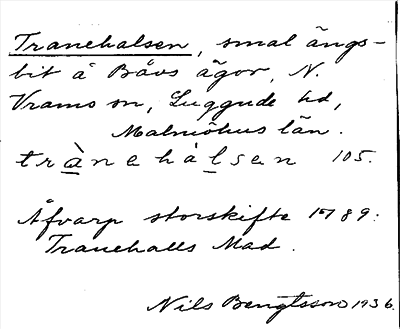 Tranehalsen, smal ängs-
bit å Båvs ägor, N.
Vrams sn, Luggude hd,
Malmöhus län.
trànehálsen 105.
Åfvarp storskifte 1789:
Tranehalls Mad.
Nils Bengtsson 1936.